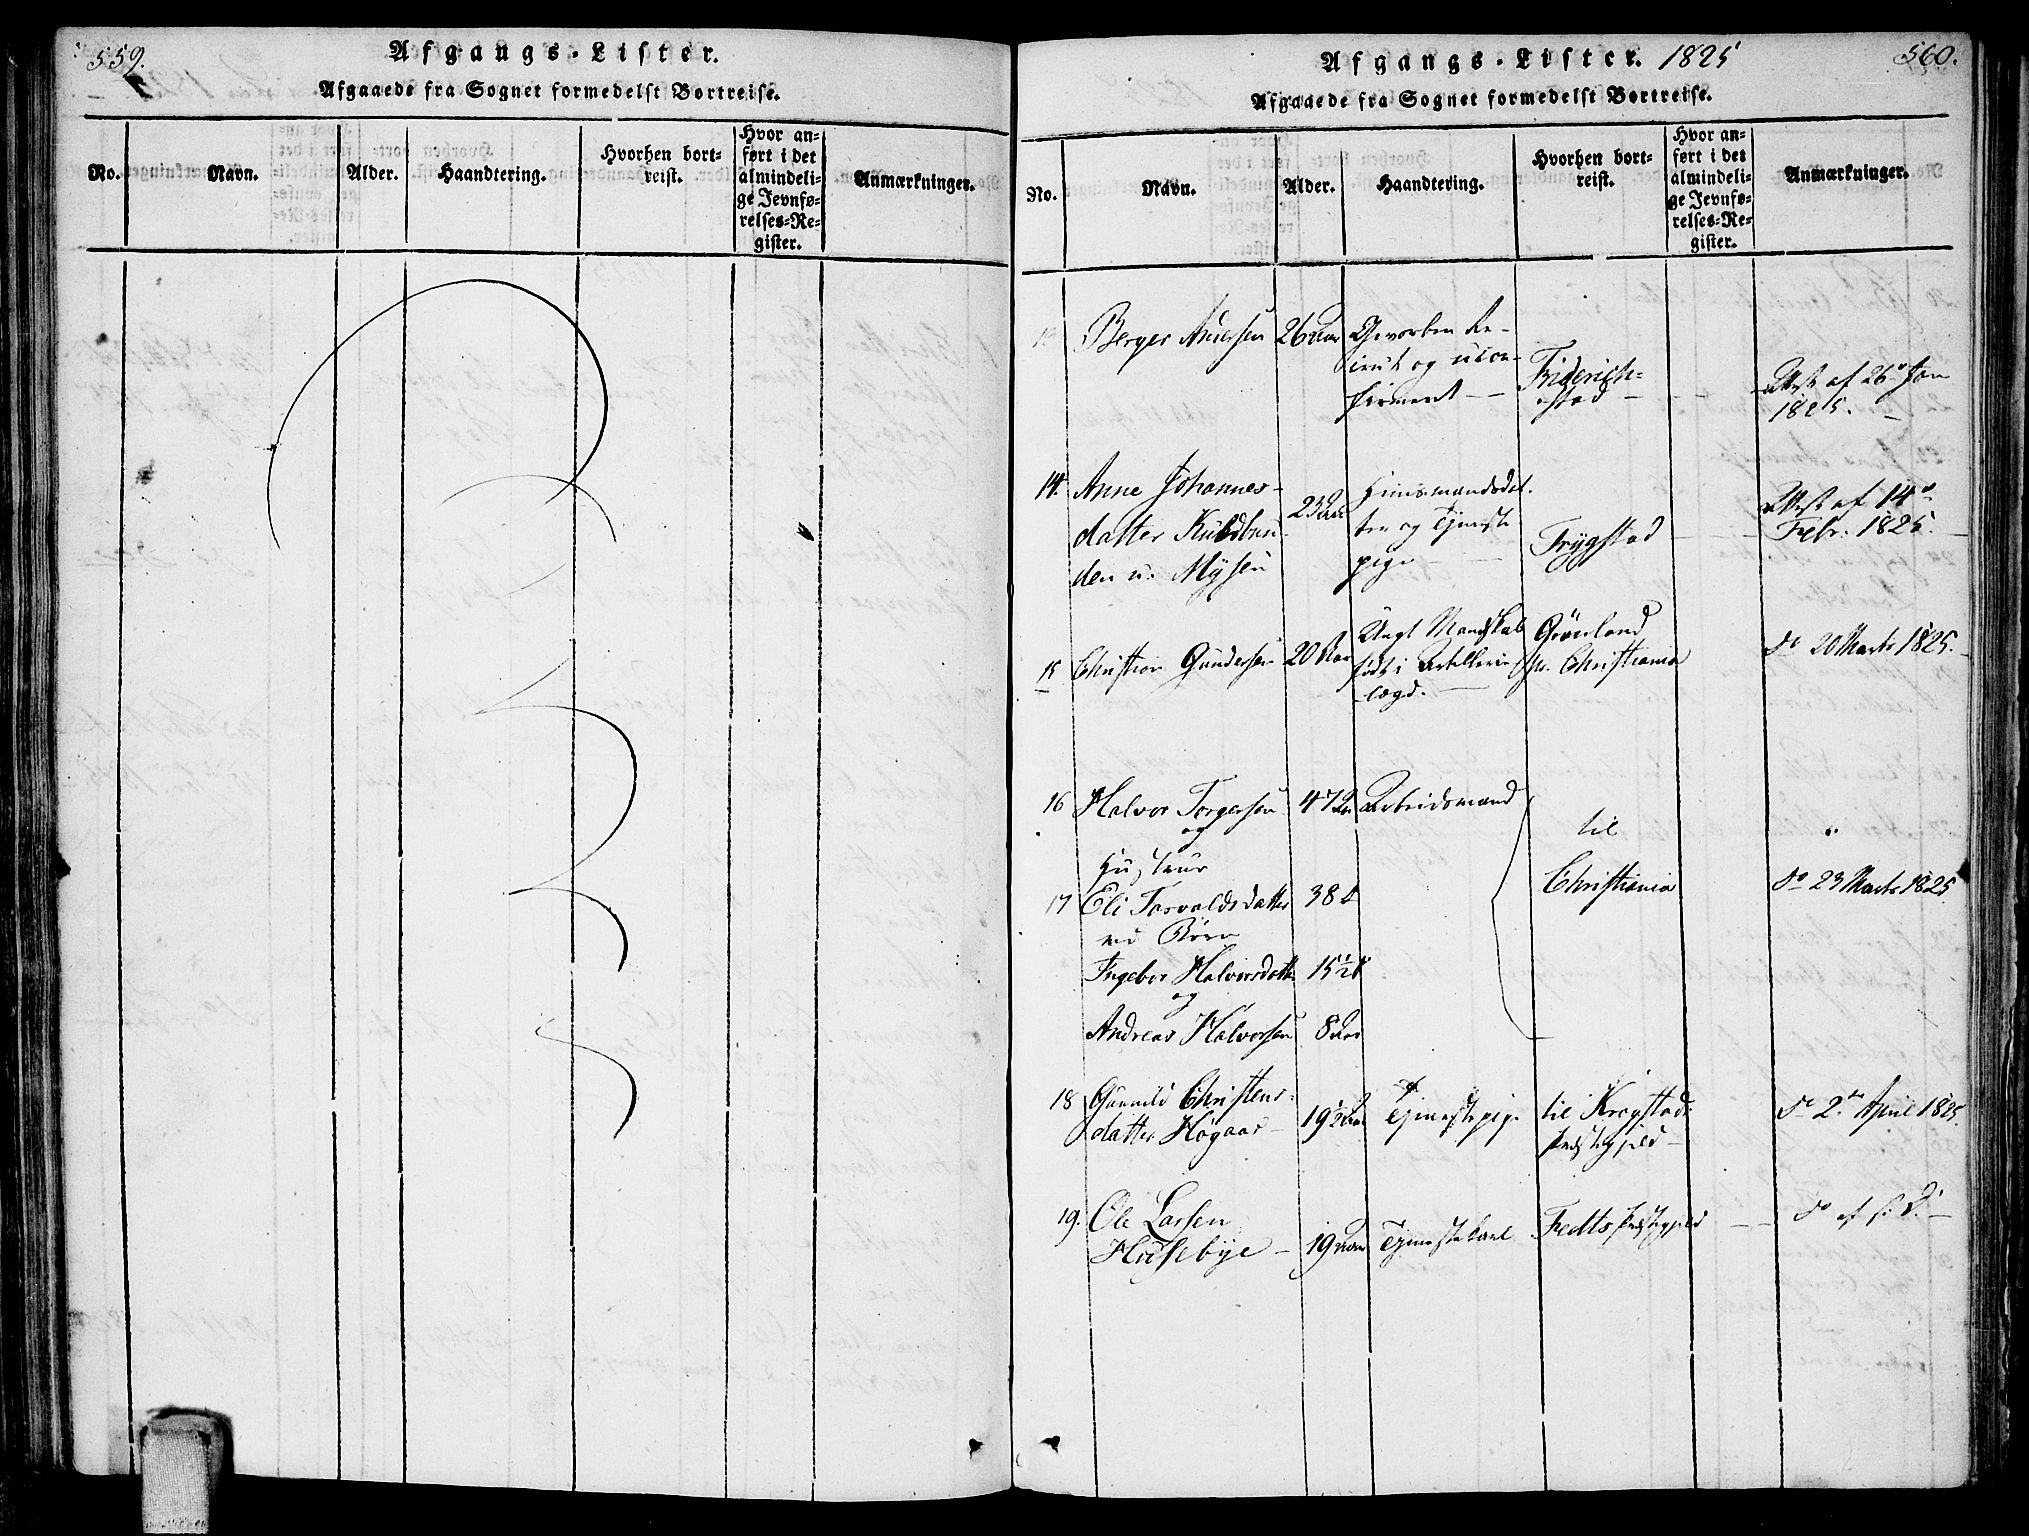 559.
Afgangs-Lister.
Afgaaede fra Sognet formedelst Bortreise.
No.
Navn.
Alder.
Haandtering.
Hvorhen bort-
reist.
Hvor an-
ført i det
almindeli-
ge Jevnfø-
relses-Re-
gister.
Anmærkninger.
Afgangs-Lister. 1825
560.
Afgaaede fra Sognet formedelst Bortreise.
No.
Navn.
Alder.
Haandtering.
Hvorhen bort-
reist.
Hvor an-
ført i det
almindeli-
ge Jevnfø-
relses-Re-
gister.
Anmærkninger.
Berger Andersen 26 Aar Gevorben Re-
crut og ucon-
firmeret
Friderich-
stad
Attest af 26 Jan
1825.
14. Anne Johannes-
datter
den u. Mysen
23 Aar
Huusmandsdat-
ter og Tjeneste
pige
Trygstad
Attest af 14
Febr. 1825.
15 Christian Gundersen 20 Aar
Ungt Mandskab
født i Artillerie
lægd.
Grønland
v. Christiania
do 20 Marts 1825.
16 Halvor Torgersen 47 Aar Arbeidsmand
og
Hustrue
17 Eli Torvaldsdatter 38 "
med Børn
Ingebor Halvorsdatter 15 1/2
og
Andreas Halvorsen 8 Aar
til
Christiania
do 23 Marts 1825
18 Gunnild Christens-
datter Høgaas
19 1/2 Aar
Tjenestepige
til Krogstad
Præstegjeld
do 2den April 1825.
19. Ole Larsen
Husebye
19 Aar
Tjenestekarl
Fedts Præstegjeld
do af s. D.